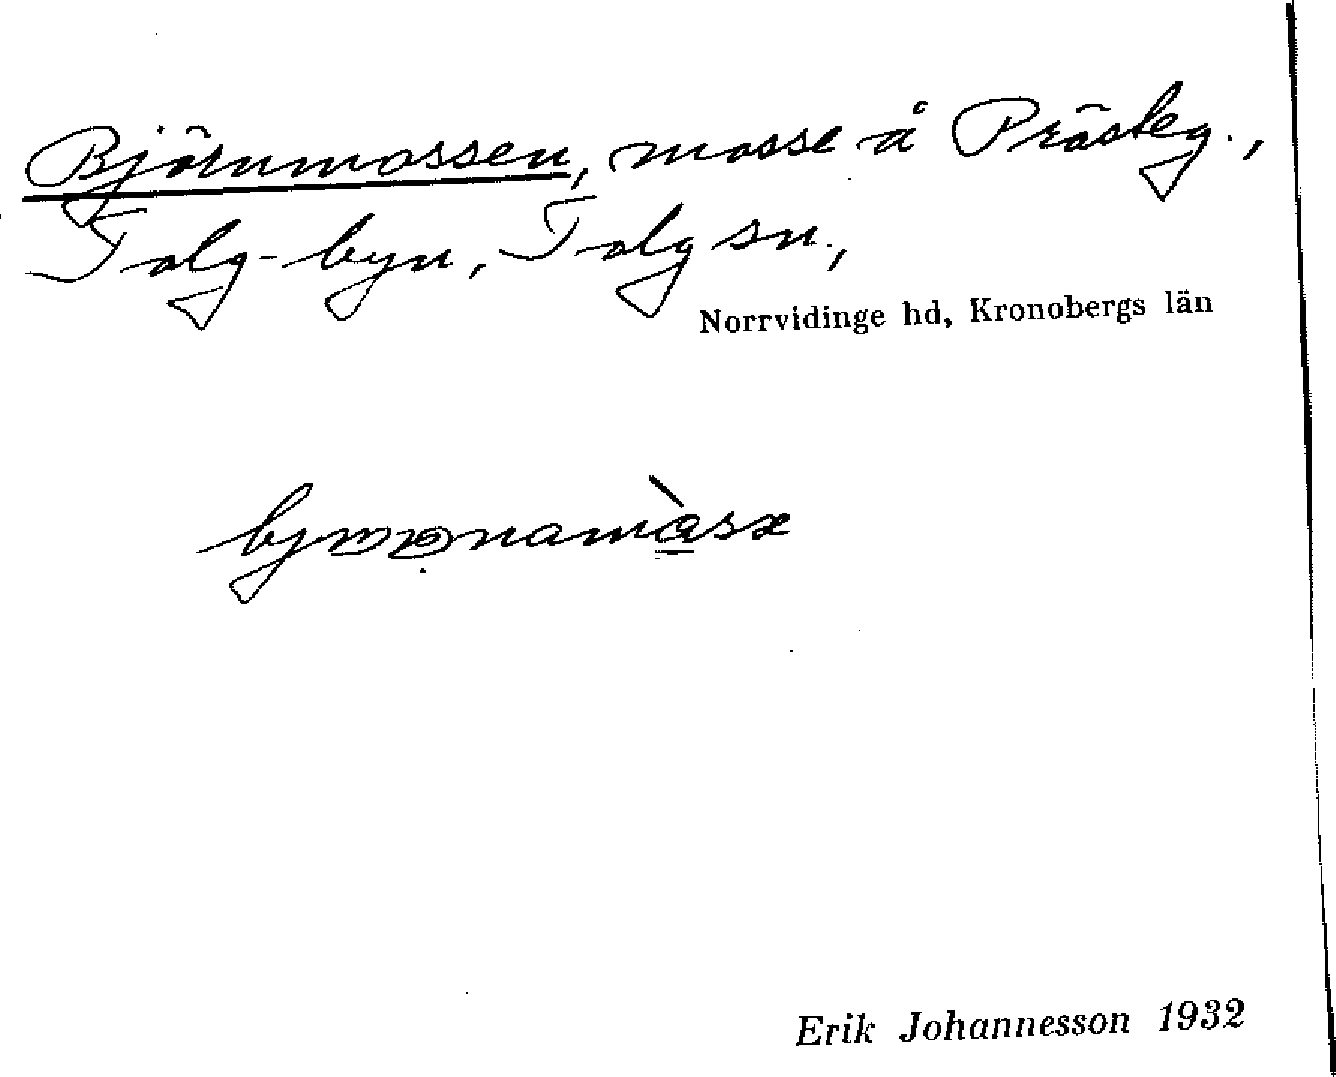 Björnmossen, mosse å Prästeg.,
Tolg-byn, Tolg sn.,
Norrvidinge hd, Kronobergs län
Erik Johannesson 1932